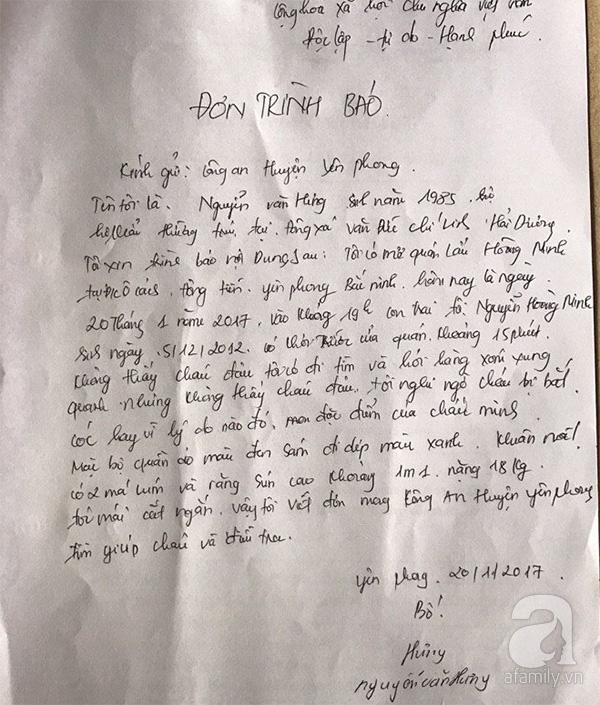 Cộng hòa xã hội chủ nghĩa việt nam
Độc lập - tự do - Hạnh phúc.
ĐƠN TRÌNH BÁO.
Kính gửi: Công an Huyện Yên phong.
Tên tôi là. Nguyễn văn Hưng sinh năm 1985.
thường trú, tại, Văn Đức chí Linh Hải Dương.
Tôi xin trình báo nội Dung sau: Tôi có mở quán Lẩu Hoàng Ninh
tại Đ/C Ô cách, Đông tiến, yên phong Bắc ninh, hôm nay là ngày
20 Tháng 1 năm 2017, vào khoảng 19h con trai tôi Nguyễn Hoàng Ninh
sinh ngày 5/12/2012. có chơi trước cửa quán, khoảng 15 phút.
không thấy cháu đâu tôi có đi tìm và hỏi hàng xóm xung
quanh nhưng không thấy cháu đâu, tôi nghi ngờ cháu bị bắt
cóc hay vì lý do nào đó, đặc điểm của cháu mình
mặc bộ quần áo màu đen sám đi dép màu xanh. khuân mặt
có 2 má lúm và răng sún cao khoảng 1m1. nặng 18 kg.
tóc mái cắt ngắn. vậy tôi viết đơn mong Công An Huyện yên phong
tìm giúp cháu và điều tra.
yên phong. 20/1/2017.
Bố!
Hưng
nguyễn văn Hưng
a
afamily.vn